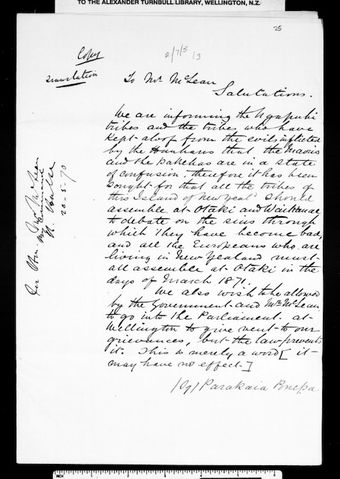 TO THE ALEXANDER TURNBULL LIBRARY, WELLINGTON, N.Z.
Copy
Translation
To Mr McLean
Salutations.
We are informing the Ngapuhi
tribes and the tribes who have
kept aloof from the evils inflicted
by the Hauhaus that the Maoris
and the pakehas are in a state
of confusion. Therefore it has been
sought for that all the tribes of
this Island of New Zeal'd should
assemble at Otaki and
to debate on the sins through
which they have become bad,
and all the Europeans who are
living in New Zealand must
all assemble at Otaki in the
days of March 1871.
We also wish to be allowed
by the Government and Mr McLean
to go into the Parliament at
Wellington to give vent to our
grievances, but the law prevents
it. This is merely a word [it
may have no effect.]
(Sg) Parakaia
For Hon D. McLean
20-5-70